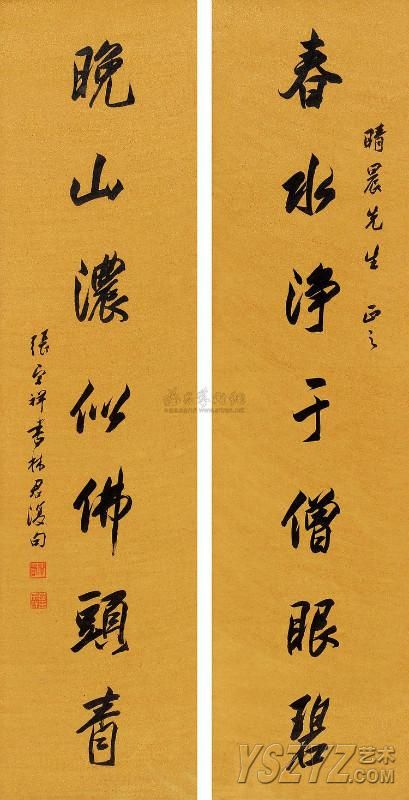 春水净于僧眼碧
晴晨先生 正之
晚山濃似佛頭青
張宗祥書林君復句
YSZYZ艺术
.com